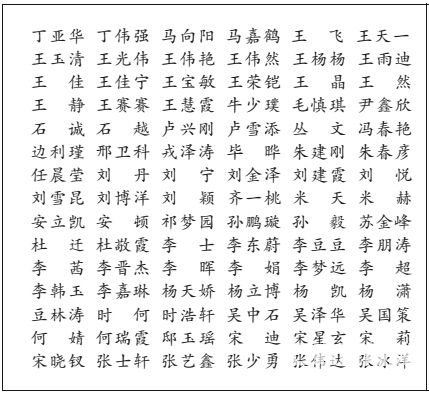 丁亚华 丁伟强 马向阳 马嘉鹤 王　飞 王天一
王玉清 王光伟 王伟艳 王伟然 王杨杨 王雨迪
王　佳 王佳宁 王宝敏 王荣铠 王　晶 王　然
王　静 王赛赛 王慧霞 牛少璞 毛慎琪 尹鑫欣
石　诚 石　越 卢兴刚 卢雪添 丛　文 冯春艳
边利瑾 邢卫科 戎泽涛 毕　晔 朱建刚 朱春彦
任晨莹 刘　丹 刘　宁 刘金泽 刘建霞 刘　悦
刘雪昆 刘博洋 刘　颖 齐一桃 米　天 米　赫
安立凯 安　顿 祁梦园 孙鹏璇 孙　毅 苏金峰
杜　迁 杜敬霞 李　士 李东蔚 李豆豆 李朋涛
李　茜 李晋杰 李　晖 李　娟 李梦远 李　超
李韩玉 李嘉琳 杨天娇 杨立博 杨　凯 杨　潇
豆林涛 时　何 时浩轩 吴中石 吴泽华 吴国策
何　婧 何瑞霞 邸玉瑶 宋　迪 宋星玄 宋　莉
宋晓钗 张士轩 张艺鑫 张少勇 张伟达 张冰洋